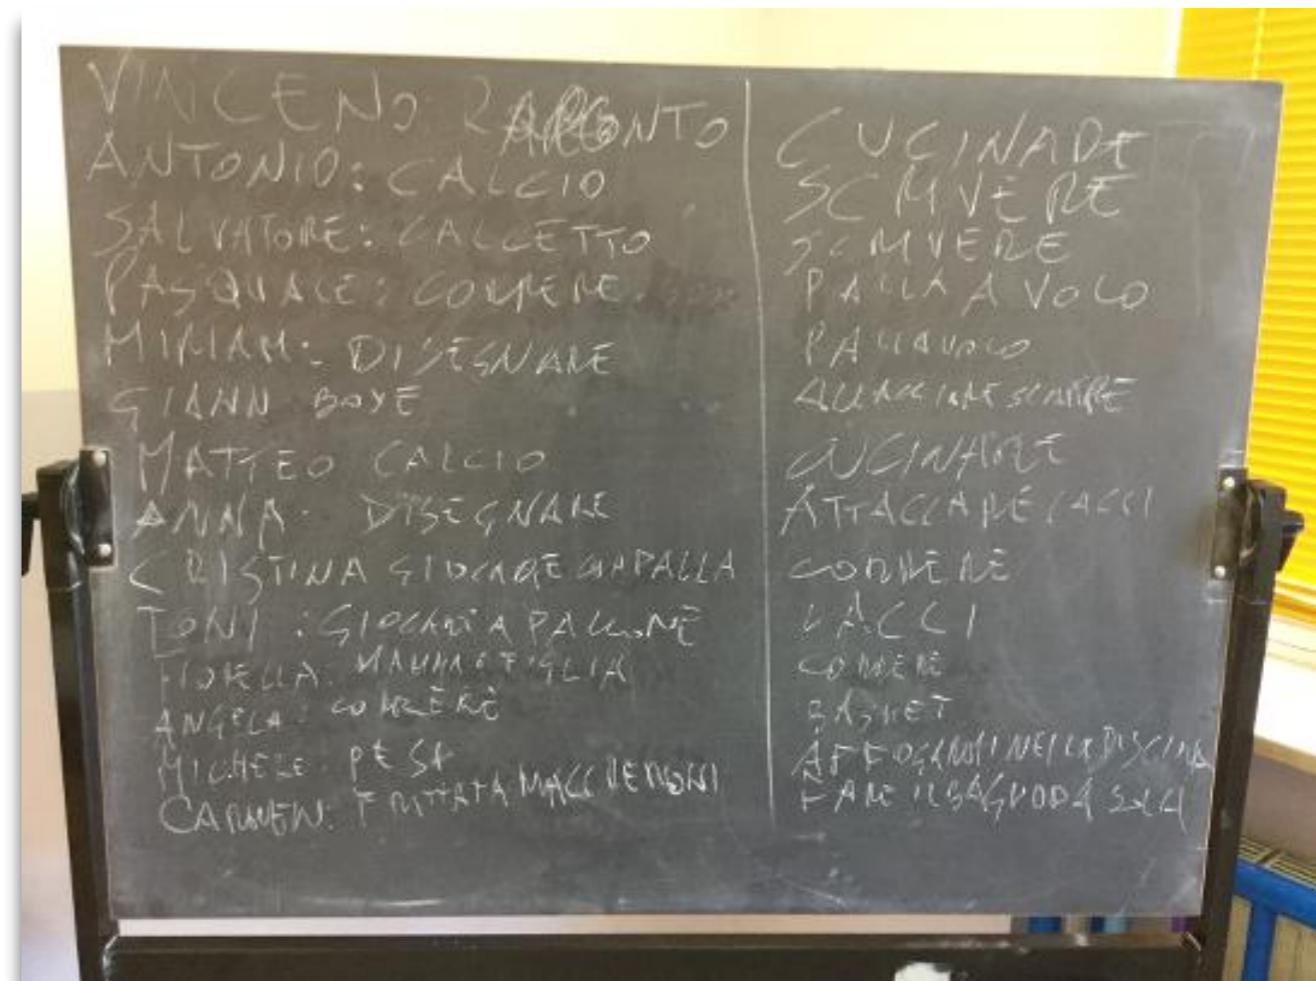 VINCENO RACCONTO
ANTONIO: CALCIO
SALVATORE: CALCETTO
PASQUALE: CORRERE
MIRIAM: DISEGNARE
GIANN BOXE
MATTEO CALCIO
ANNA. DISEGNARE
CRISTINA GIOCARE PALLA
TONI: GIOCARE A PALLONE
FIORELLA: MAMMA E FIGLIA
ANGELA: CORRERE
MICHELE PESA
CARMEN: FRITTATA
CUCINARE
SCRIVERE
SCRIVERE
PALLA A VOLO
PALLAVOLO
CUCINARE
ATTACCARE LACCI
CORRERE
LACCI
CORRERE
BASKET
AFFOGARSI NELLA PISCINA
FARE IL BAGNO DA SOLA